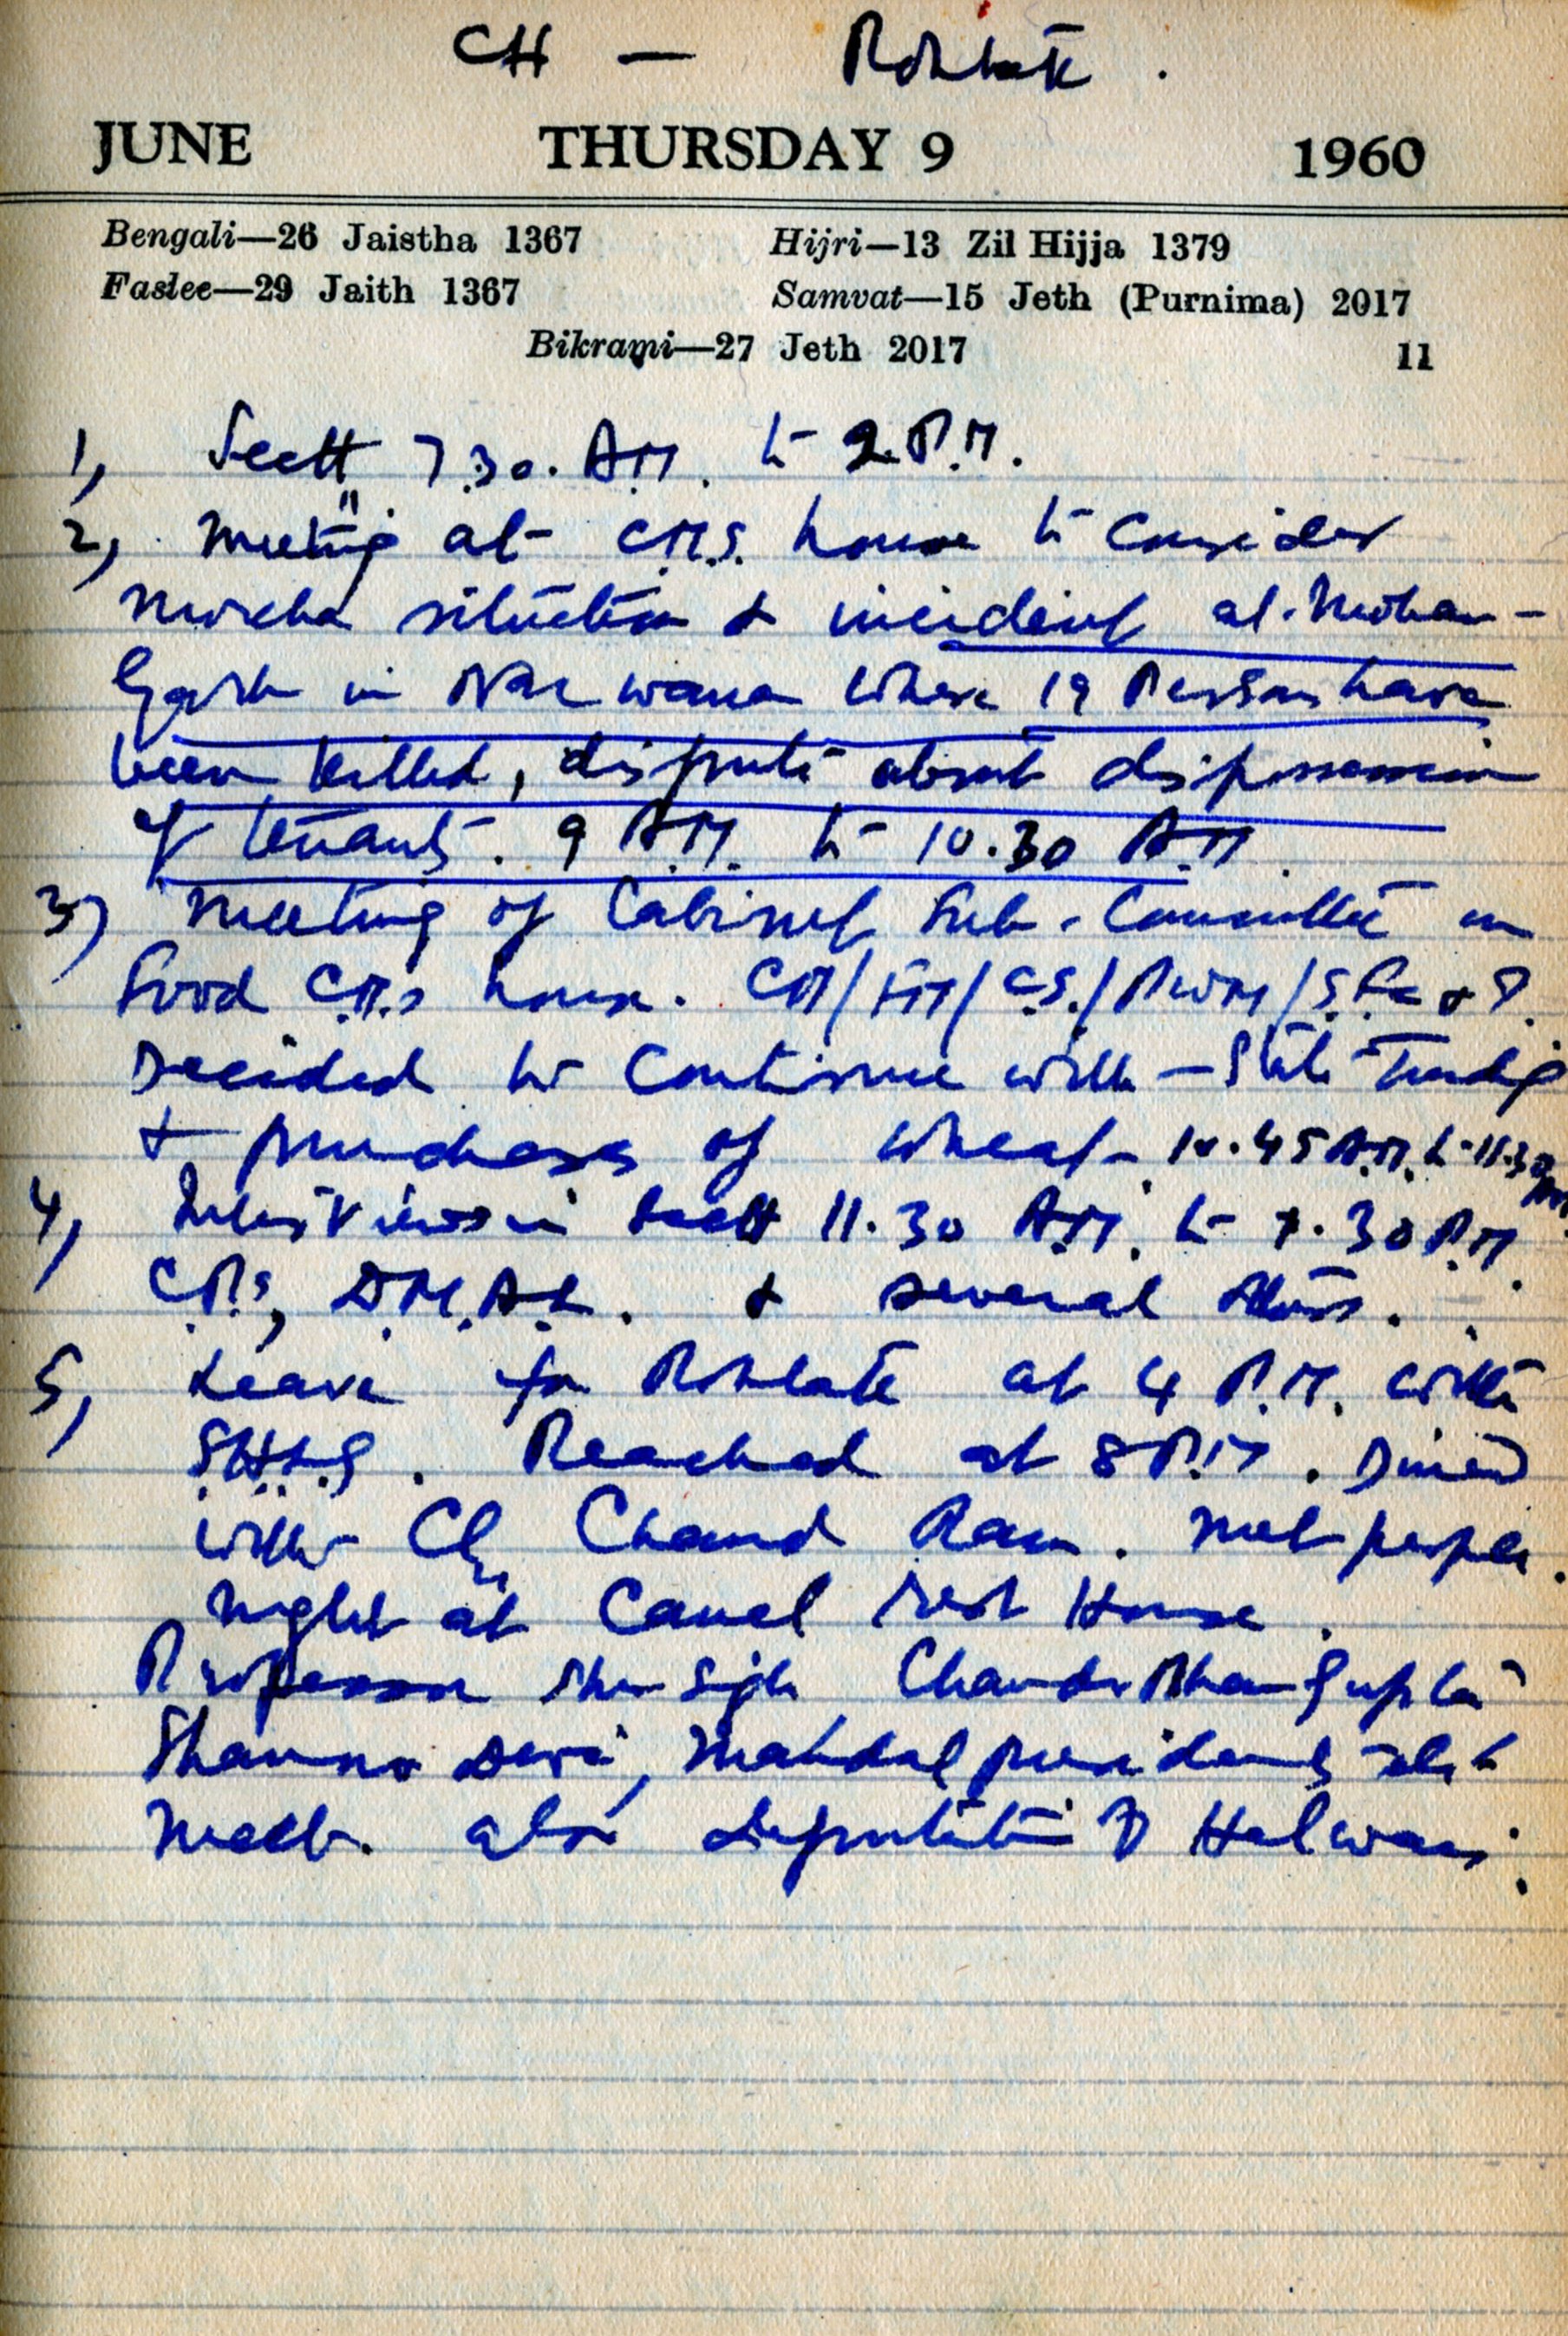 CH — Rohtak.
JUNE THURSDAY 9 1960
Bengali—26 Jaistha 1367 Hijri—13 Zil Hijja 1379
Faslee—29 Jaith 1367 Samvat—15 Jeth (Purnima) 2017
Bikrami—27 Jeth 2017 11
1, Sectt 7.30. A.M. to 2 P.M.
2, Meeting at C.M.S. house to consider
Morcha situation & incident at Mohan-
Garh in Narwana where 19 Persons have
been killed, dispute about dispossession
of tenants. 9 A.M. to 10.30 A.M.
3) Meeting of Cabinet Sub-Committee on
Food C.M.s house. CM/FM/C.S./PWM/S.
Decided to continue with — State Trading
& purchases of wheat. 10.45 A.M. to 11.30
4, Interviews in Sectt 11.30 A.M. to 1.30 P.M.
& several others.
5, Leave for Rohtak at 4 P.M. with
Reached at 8 P.M. Dined
with Ch Chand Ram. Met people.
Night at Canal Rest House.
Professor Sher Singh Chander Bhan Gupta
Shanno Devi, Mandal presidents
Meet. also deputation of Halwais.